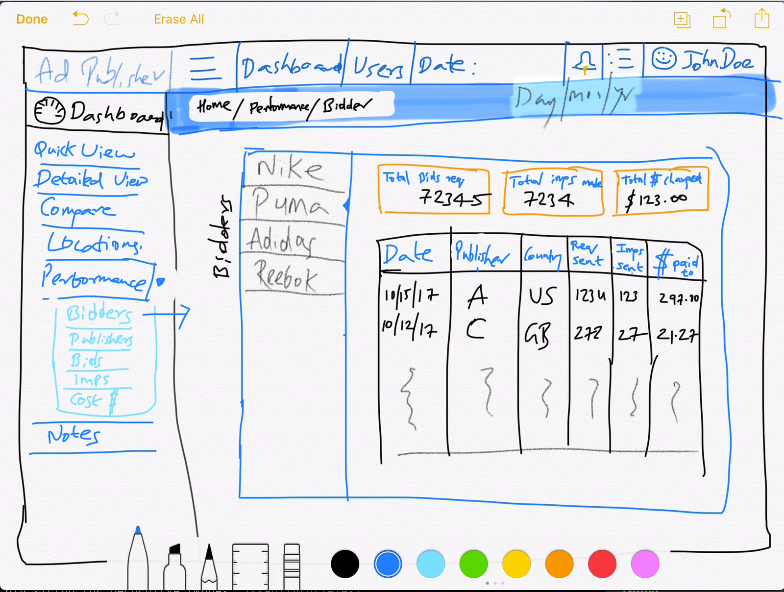 Done Erase All
Ad Publisher Dashboard Users Date: JohnDoe
Dashboard Home / Performance / Bidder Day/mon/yr
Quick View
Detailed View
Compare
Locations
Performance
Bidders
Publishers
Bids
Imps
Cost $
Notes
Bidders
Nike
Puma
Adidas
Reebok
Total Bids req
72345
Total imps made
7234
Total $ charged
$123.00
Date Publisher Country Req sent Imps sent $ paid to
10/15/17 A US 1234 123 297.10
10/12/17 C GB 272 27 21.27